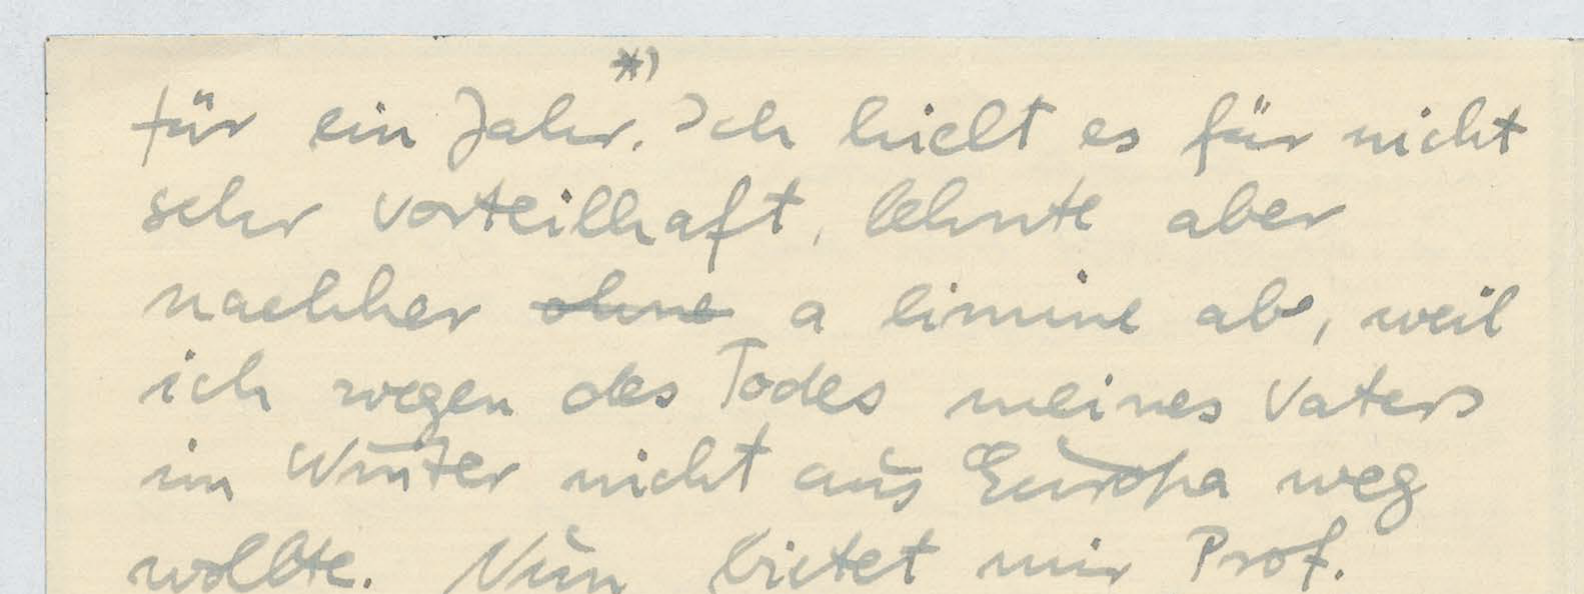 für ein Jahr.*) Ich hielt es für nicht
sehr vorteilhaft, lehnte aber
nachher ohne a limine ab, weil
ich wegen des Todes meines Vaters
im Winter nicht aus Europa weg
wollte. Nun bietet mir Prof.